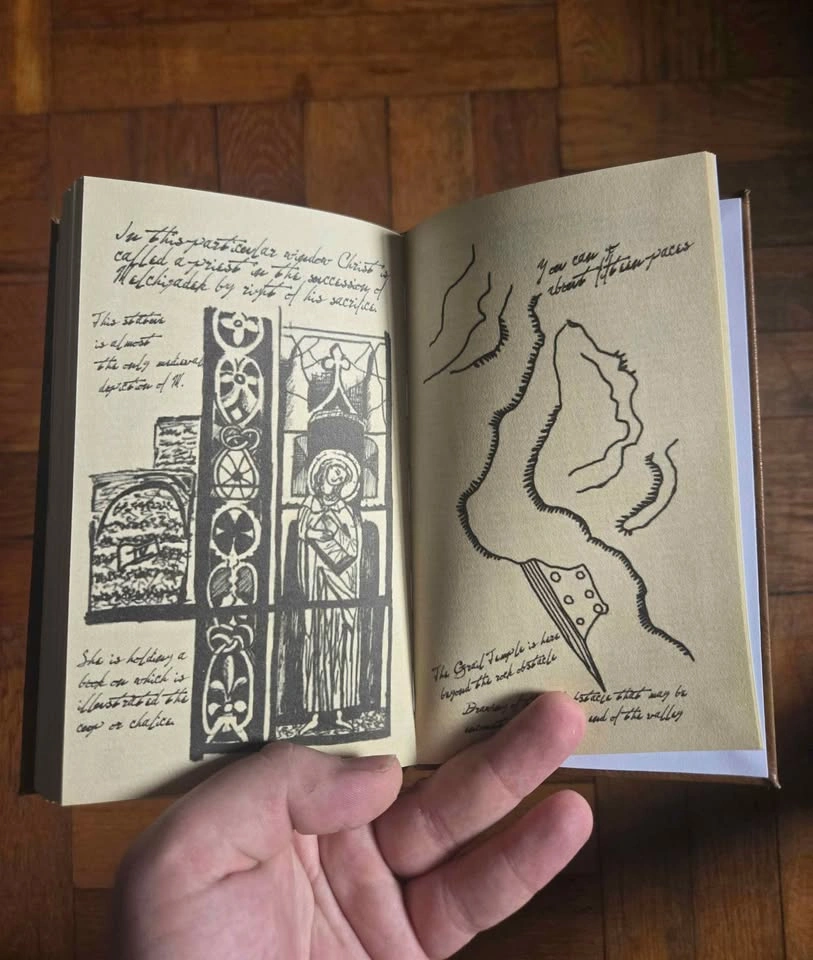 In this particular window Christ is
called a priest in the succession of
Melchizadek by right of his sacrifice.
This statue
is almost
the only medieval
depiction of M.
She is holding a
book on which is
illustrated the
cup or chalice
You can
about fifteen paces
The Grail Temple is here
beyond the rock obstacle
Drawing of obstacle that may be
end of the valley